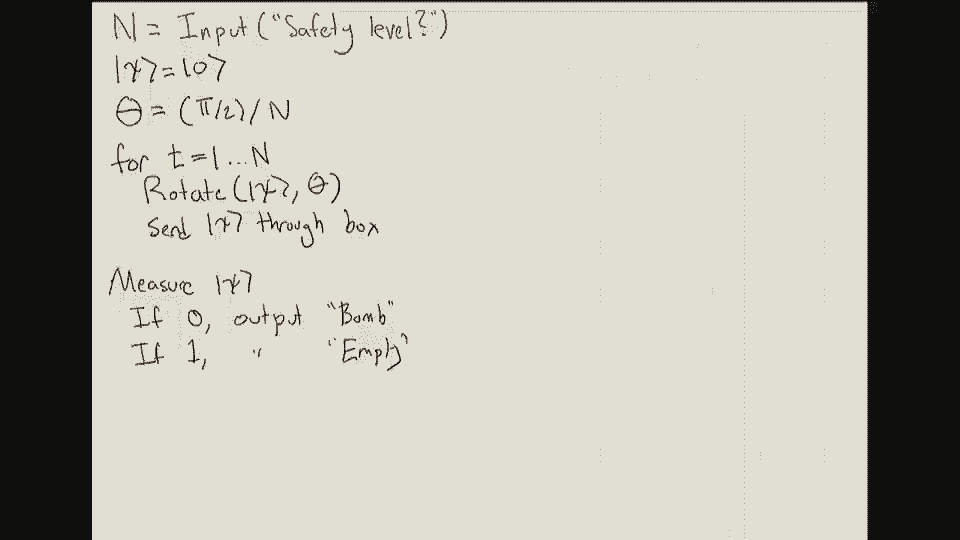 N = Input ("Safety level?")
|ψ⟩ = |0⟩
θ = (π/2) / N
for t = 1 ... N
Rotate (|ψ⟩, θ)
Send |ψ⟩ through box
Measure |ψ⟩
If 0, output "Bomb"
If 1, " "Empty"